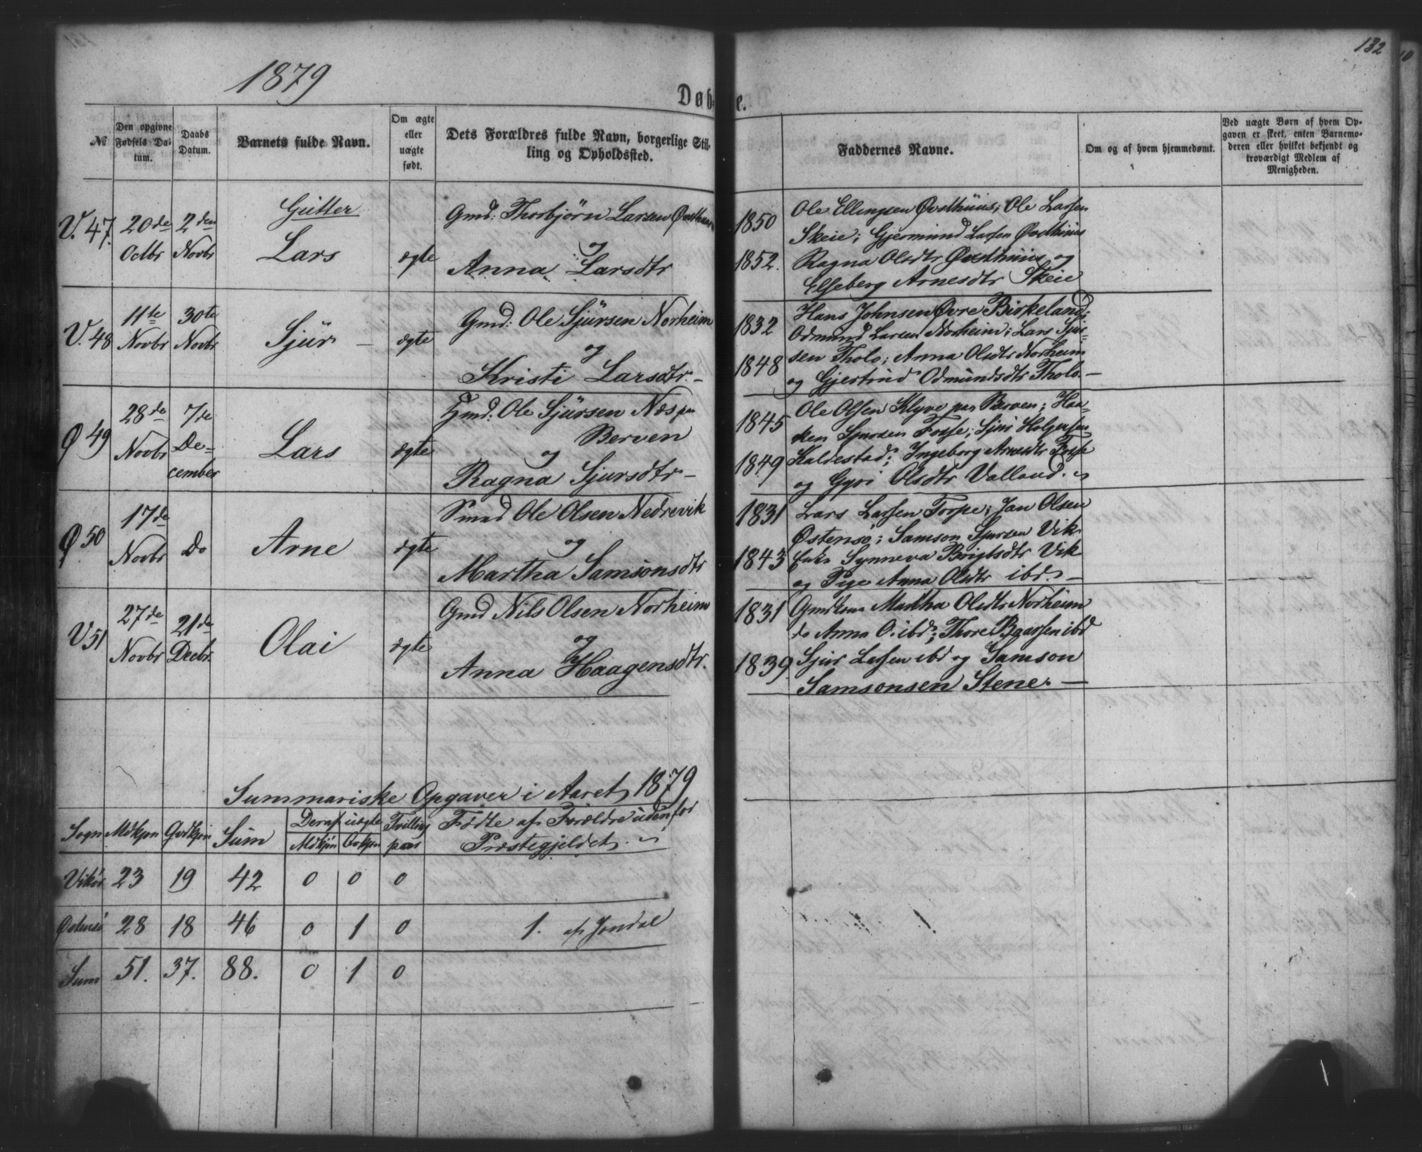 1879
132
Døbte.
№
Den opgivne Fødsels Datum.
Daabs Datum.
Barnets fulde Navn.
Om ægte eller uægte født.
Dets Forældres fulde Navn, borgerlige Stilling og Opholdssted.
Faddernes Navne.
Om og af hvem hjemmedøbt.
Ved uægte Børn af hvem Opgaven er skeet, enten Barnemoderen eller hvilket bekjendt og troværdigt Medlem af Menigheden.
Gutter
V. 47. 20de Octbr 2den Novbr Lars ægte
Gmd: Thorbjörn Larsen Østhuus
og
Anna Larsdtr
1850
1852.
Ole Ellingsen Østhuus; Ole Larsen
Skeie; Gjermund Larsen Østhuus
Ragna Olsdtr Østhuus og
Elseberg Arnesdtr Skeie
V. 48 11te Novbr 30te Novbr Sjur – ægte
Gmd: Ole Sjursen Norheim
og
Kristi Larsdtr. –
1832
1848
Hans Johnsen Øvre Birkeland;
Odmund Larsen Norheim; Lars Sjur-
sen Tholo; Anna Olsdtr Norheim
og Gjertrud Odmundsdtr Tholo. –
Ø 49 28de Novbr 7de December Lars ægte
Gmd: Ole Sjursen Næs paa
Berven
og
Ragna Sjursdtr –
1845
1849
Ole Olsen Klyve paa Berven; Haa-
ken Sjursen Fosse; Sjur Holgersen
Kaldestad; Ingeborg Arnesdtr Fosse
og Gyri Olsdtr Valland.
Ø 50 17de Novbr Do Arne ægte
Smed Ole Olsen Nedrevik
og
Martha Samsonsdtr
1831
1843
Lars Larsen Torpe; Jan Olsen
Østensö; Samson Sjursen Vik
Synneva Brigtsdtr Vik
og Pige Anna Olsdtr ibd. –
V 51 27de Novbr 21de Decbr. Olai ægte
Gmd Nils Olsen Norheim
og
Anna Haagensdtr.
1831
1839.
Martha Olsdtr Norheim
do Anna O. ibd; Thore ibd
Sjur Larsen ibd og Samson
Samsonsen Stene. –
Summariske Opgaver i Aaret 1879
Sogn Mdkjøn Qvdkjøn Sum Deraf uægte Mdkjøn Qvkjøn Tvillingpaar Födte af Forældre udenfor Præstegjeldet.
Vikör 23 19 42 0 0 0
Østensö 28 18 46 0 1 0 1. af Jondal
Sum 51. 37. 88. 0 1 0